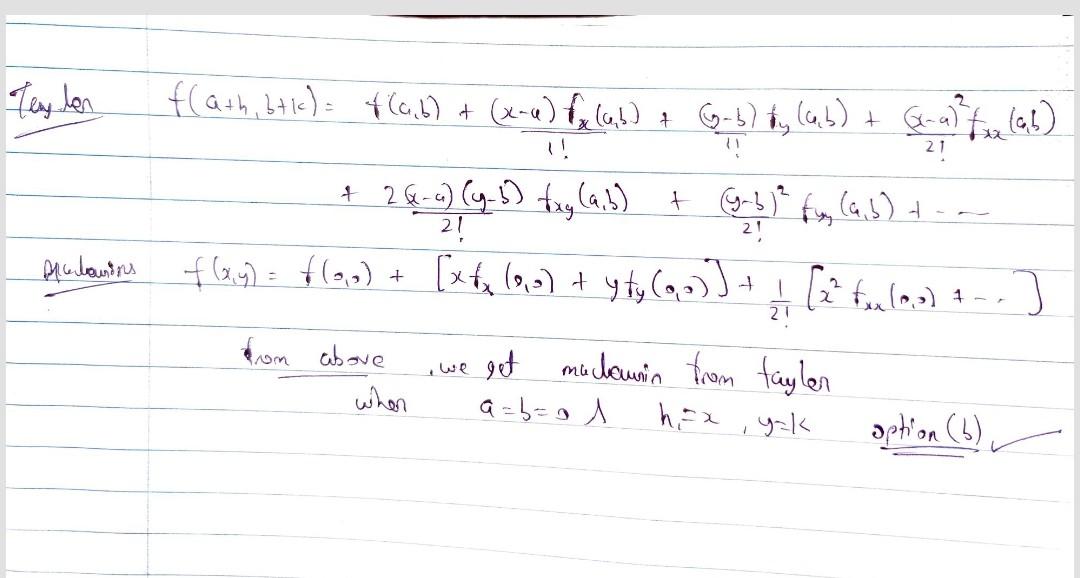 Taylor f(a+h, b+k) = f(a,b) + (x-a)/1! f_x(a,b) + (y-b)/1! f_y(a,b) + (x-a)²/2! f_xx(a,b)
+ 2(x-a)(y-b)/2! f_xy(a,b) + (y-b)²/2! f_yy(a,b) + ---
Maclaurins f(x,y) = f(0,0) + [x f_x (0,0) + y f_y (0,0)] + 1/2! [x² f_xx (0,0) + --- ]
from above, we get maclaurin from taylor
when a=b=0 ∧ h=x, y=k option (b) ✓